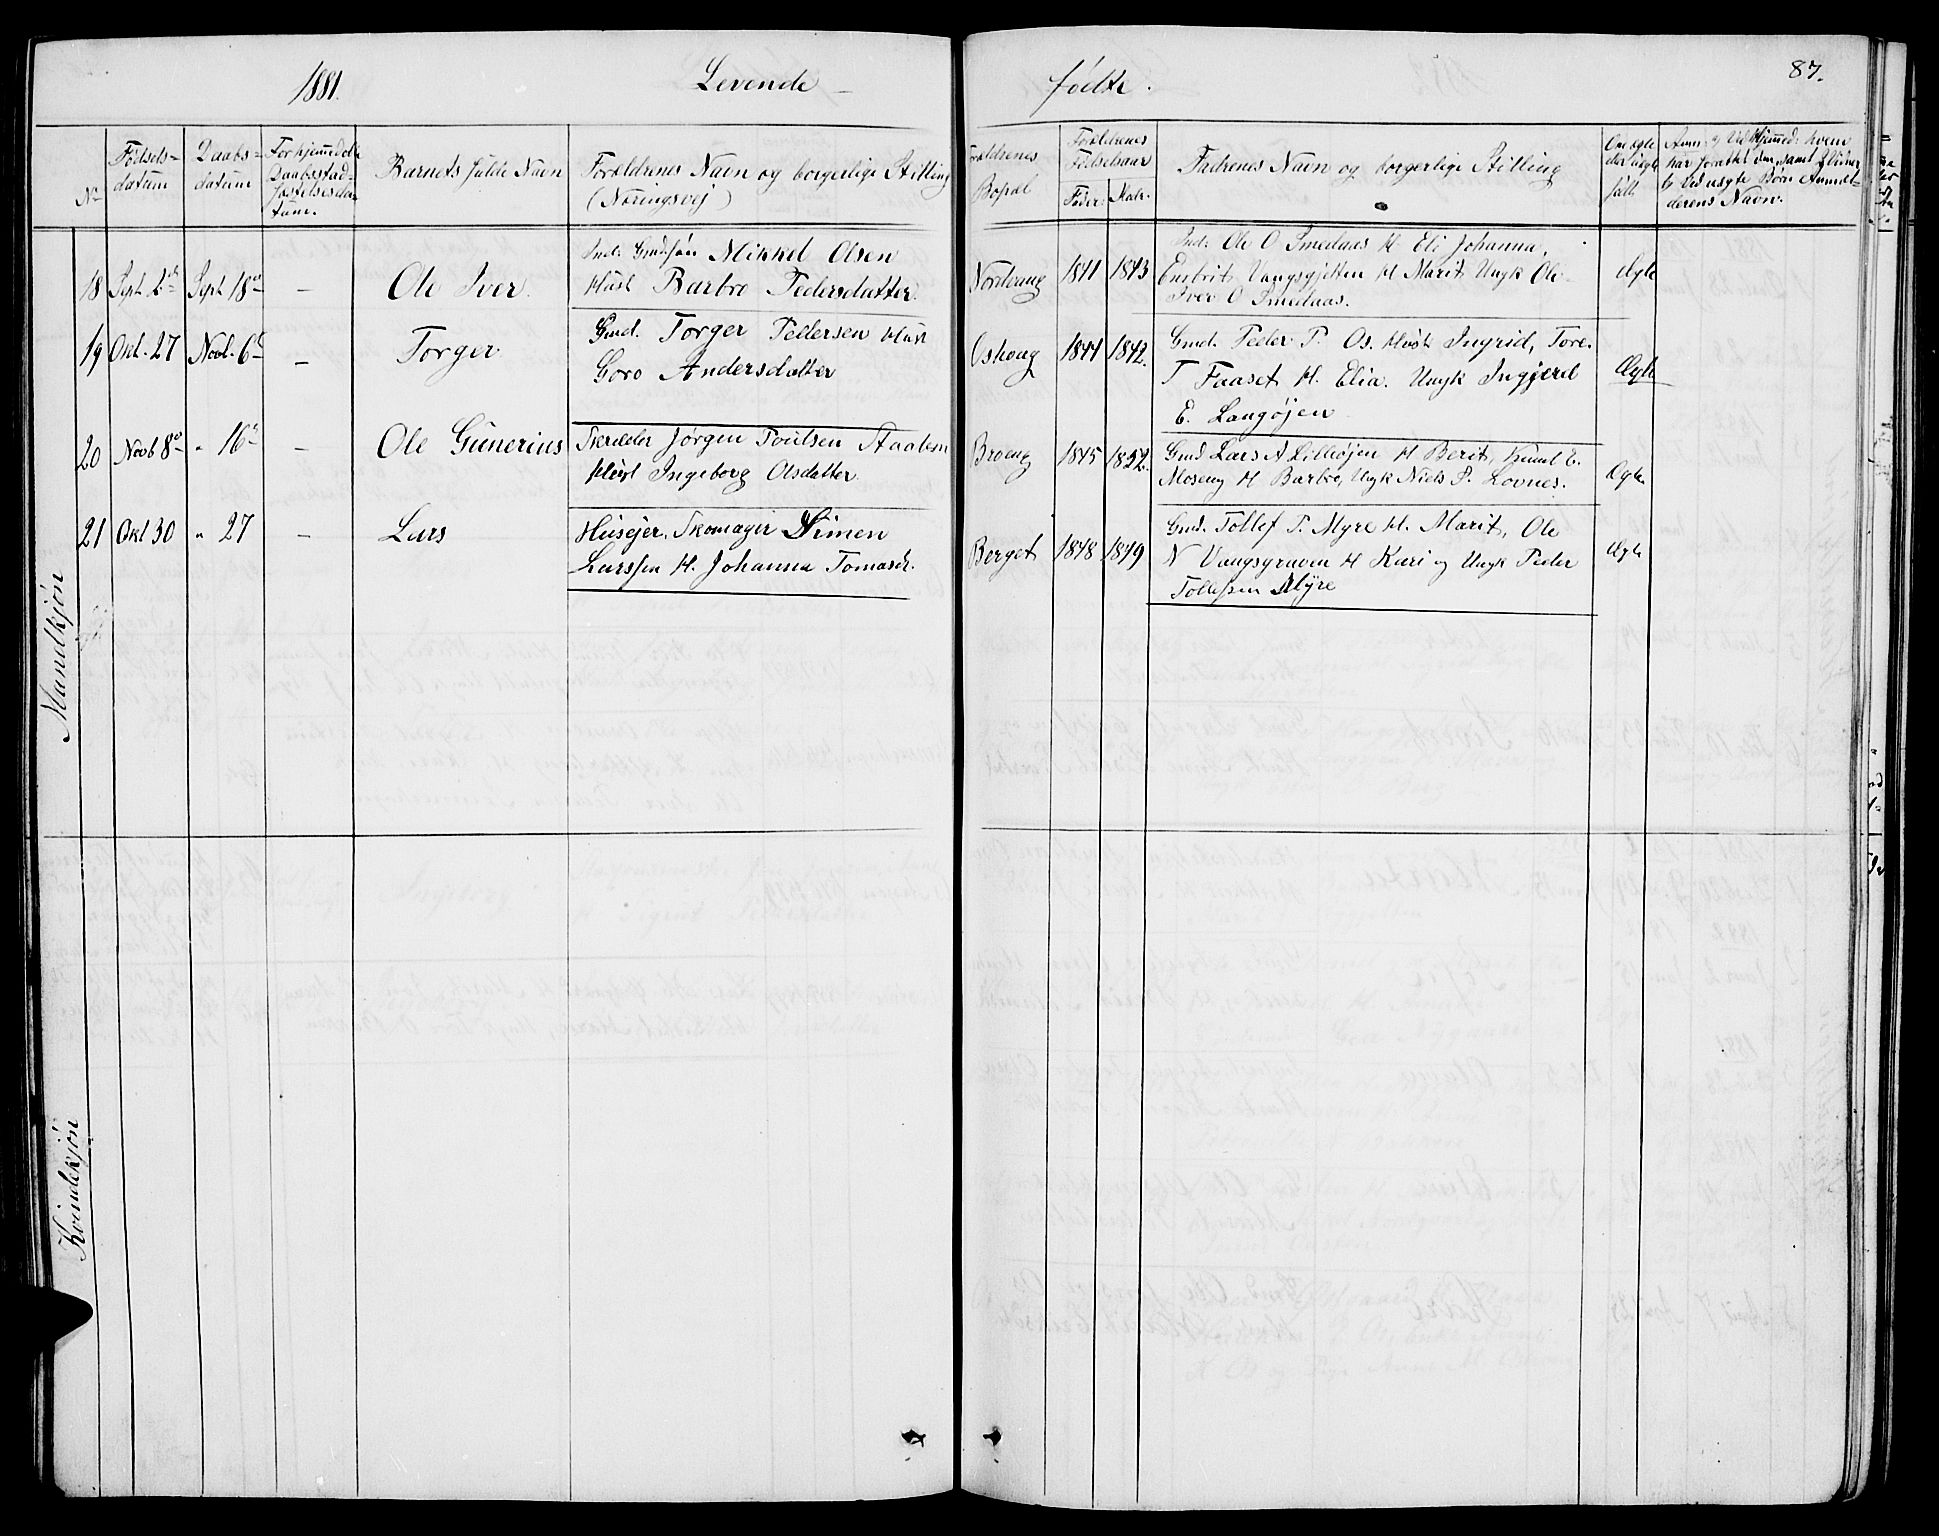 1881. Levende fødte. 87.
No
Fødsels-
datum
Daabs-
datum
Barnets fulde Navn
Forældrenes Navn og borgerlige Stilling
(Næringsvej)
Forældrenes
Bopæl
Forældrenes
Fødselsaar
Fader. Modr.
Fadrenes Navn og borgerlige Stilling
Om ægte
eller uægte
født
derens Navn.
Mandkjøn
18 Sept 2 Sept 18 — Ole Iver.
Mikkel Olsen
Hust Barbro Pedersdatter.
Nordvang 1841 1843
Ind. Ole O Smedaas H Eli Johanna,
Vangsgjelten H Marit Ungk Ole
Iver O Smedaas.
Ægte
19 Okt. 27 Novb. 6 — Torger
Gmd. Torger Pedersen Hust
Goro Andersdatter
Oshoug 1844 1842.
Gmd. Peder P. Os. Hust Ingrid, Tore.
T Faaset H. Elia. Ungk Ingjerd
E. Langøjen
Ægte
20 Novb 8 " 16 — Ole Gunerius
Skrædder Jørgen Poulsen
Hust Ingeborg Olsdatter
Broeng 1845 1852.
Gmd Lars A Lilleøjen H Berit, Knud E.
Moseng H Barbro, Ungk Niels P. Lovnes.
Ægte
21 Okt 30 " 27 — Lars
Husejer, Skomager Simen
Larssen H. Johanna Tomasdt.
Berget 1848 1849
Gmd. Tollef P. Myre H. Marit, Ole
N Vangsgraven H Kari og Ungk Peder
Tollefsen Myre
Ægte
Kvindekjøn